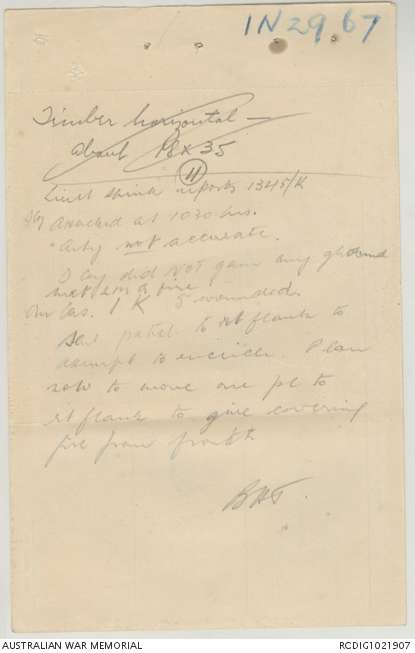 1N2967
Timber horizontal —
about 18 x 35
11
Lieut reports 1345/K
Attacked at 1030 hrs.
"Arty not accurate.
D Coy did not gain any ground
met LMG fire
Own Cas. 1 K 5 wounded.
Sent patrol to rt flank to
attempt to encircle. Plan
now to move one pl to
rt flank to give covering
fire from
AUSTRALIAN WAR MEMORIAL
RCDIG1021907